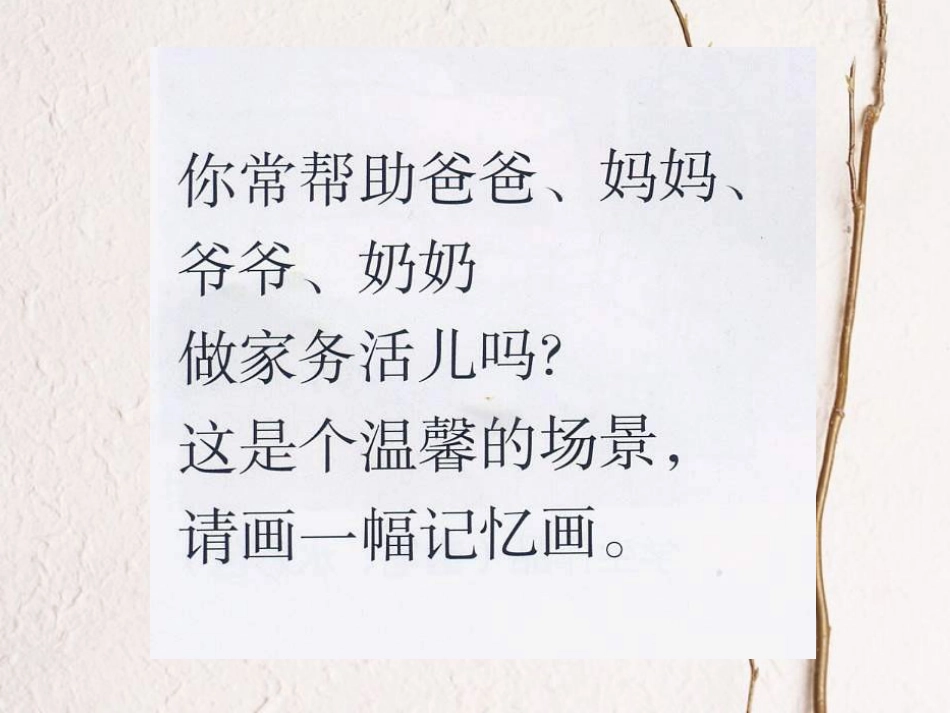 你常帮助爸爸、妈妈、
爷爷、奶奶
做家务活儿吗?
这是个温馨的场景，
请画一幅记忆画。